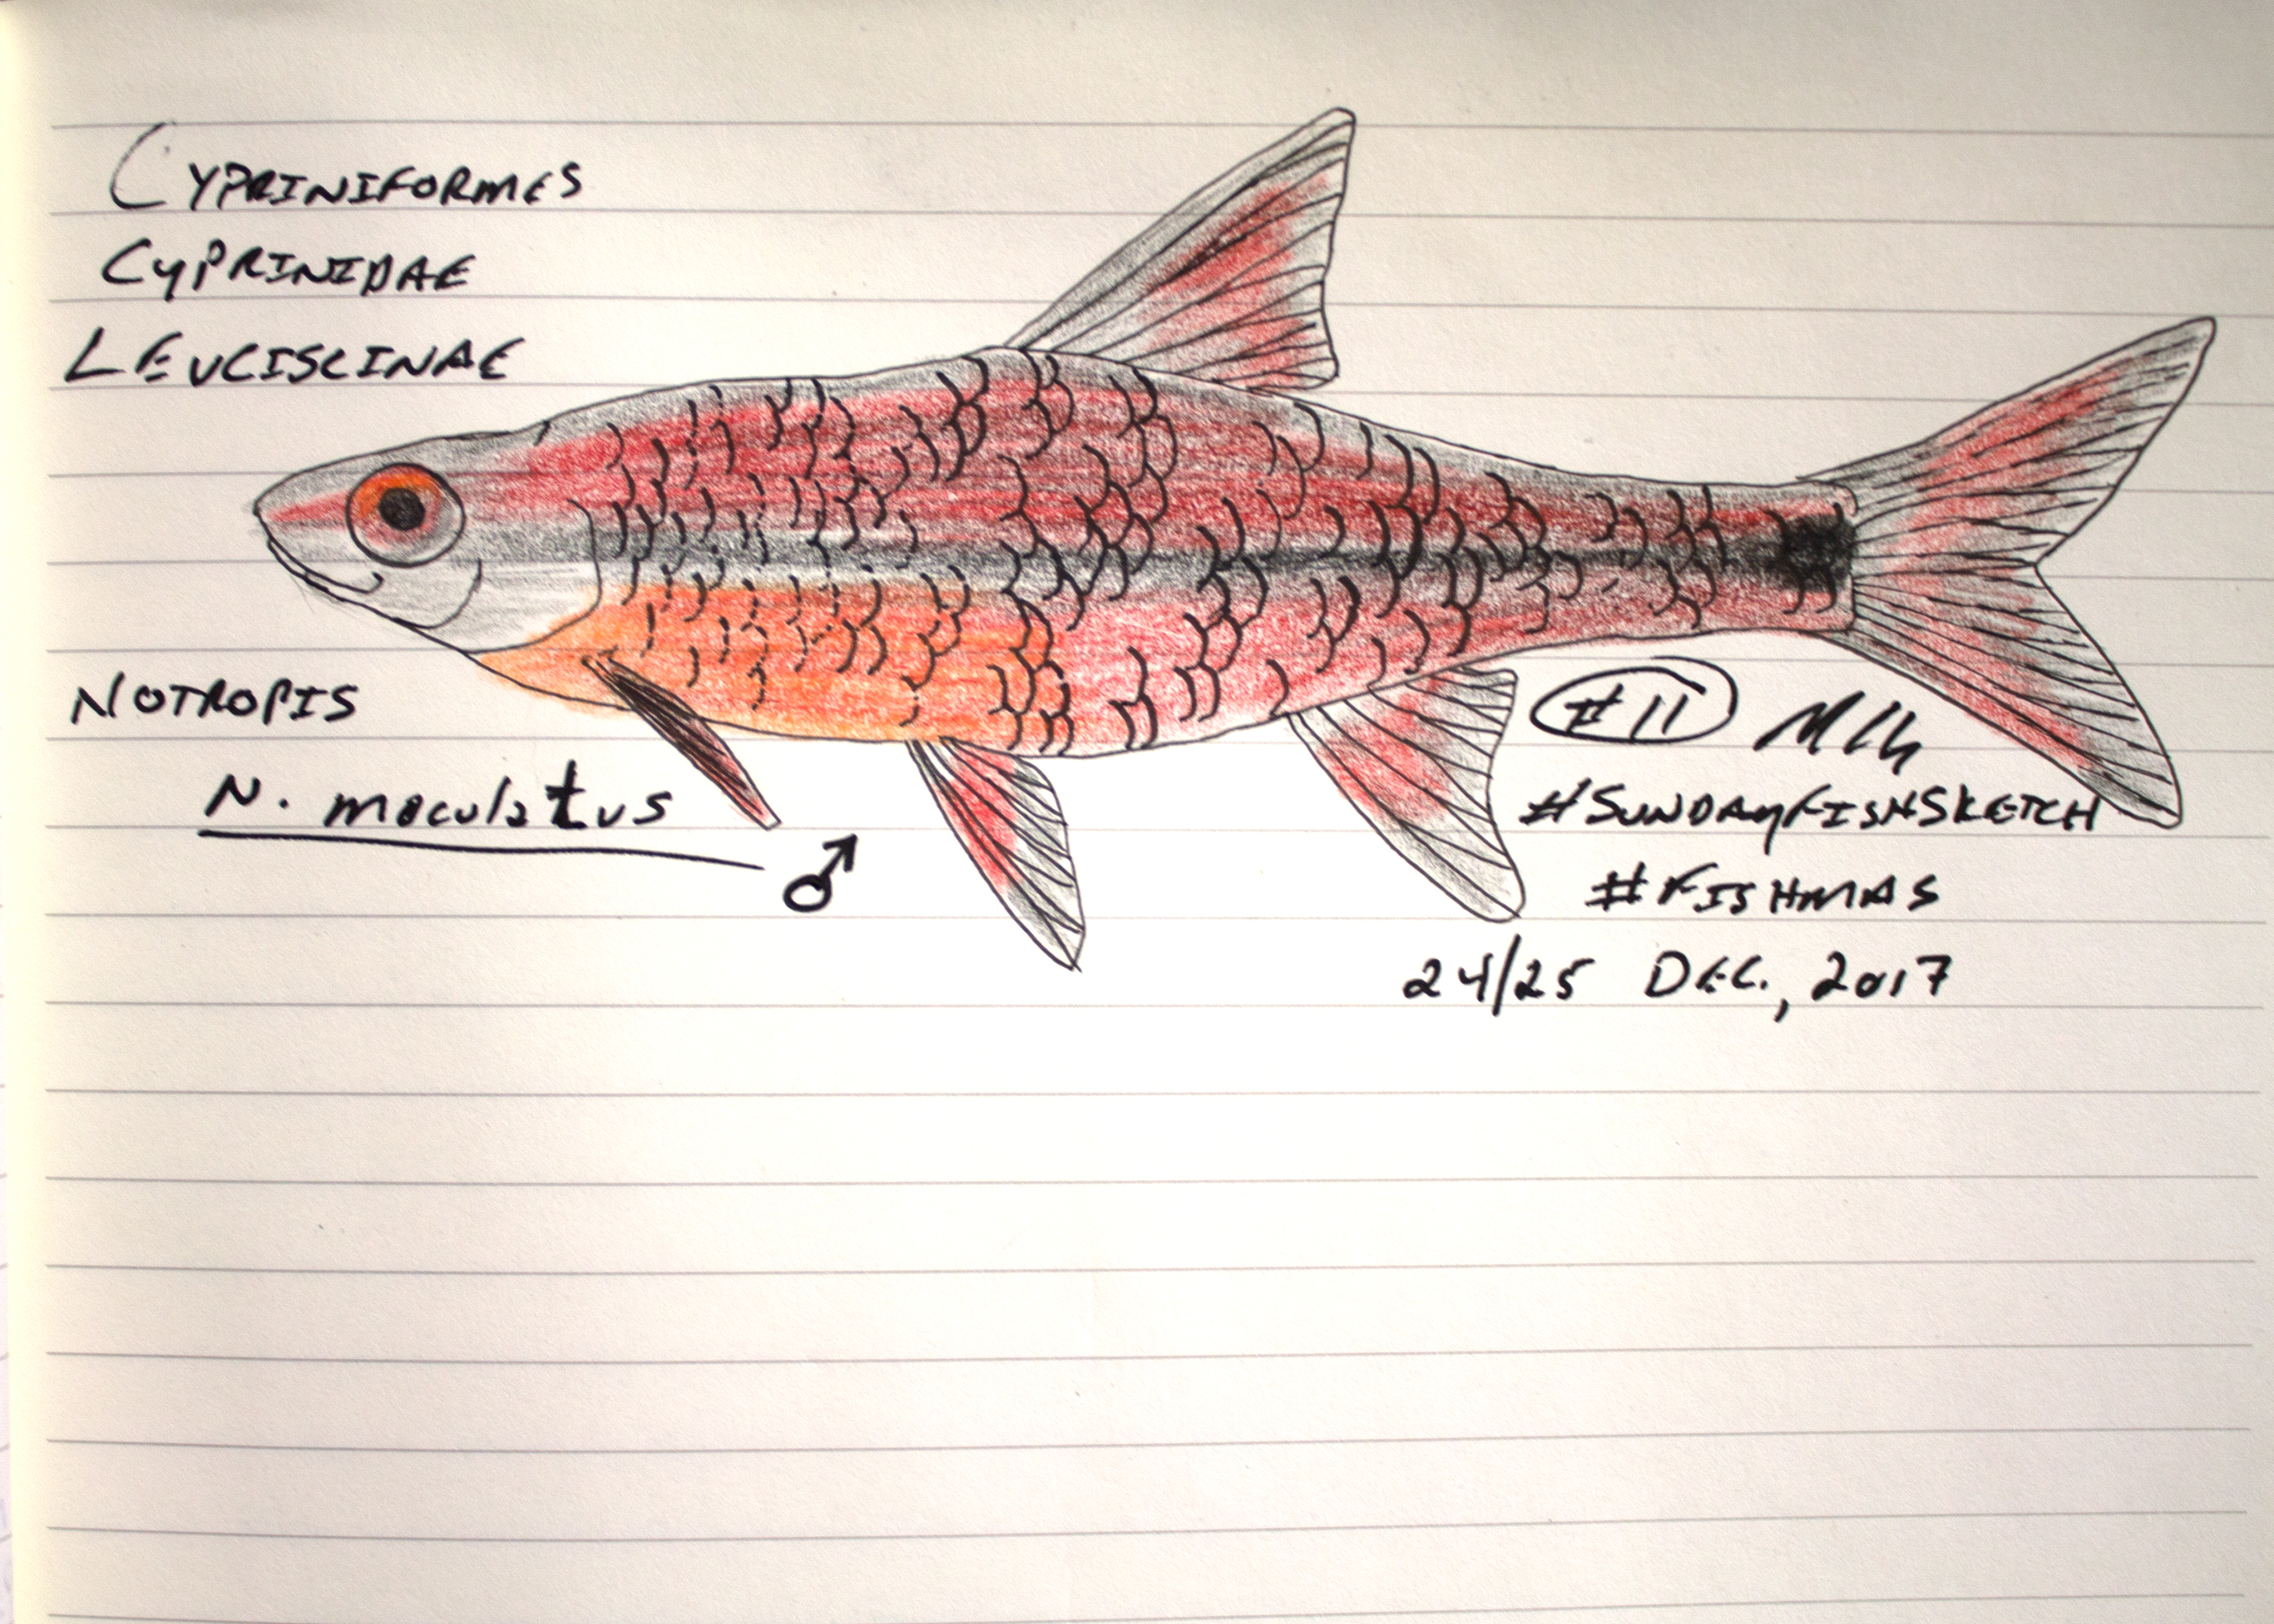 CYPRINIFORMES
CYPRINIDAE
LEUCISCINAE
NOTROPIS
N. maculatus
♂
#11
#SUNDAYFISHSKETCH
#FISHMAS
24/25 DEC., 2017